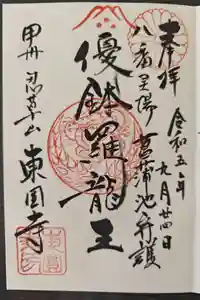 奉拝
令和五年
九月廿四日
八番霊場 菖蒲池弁護
優鉢羅龍王
甲州忍草山 東圓寺